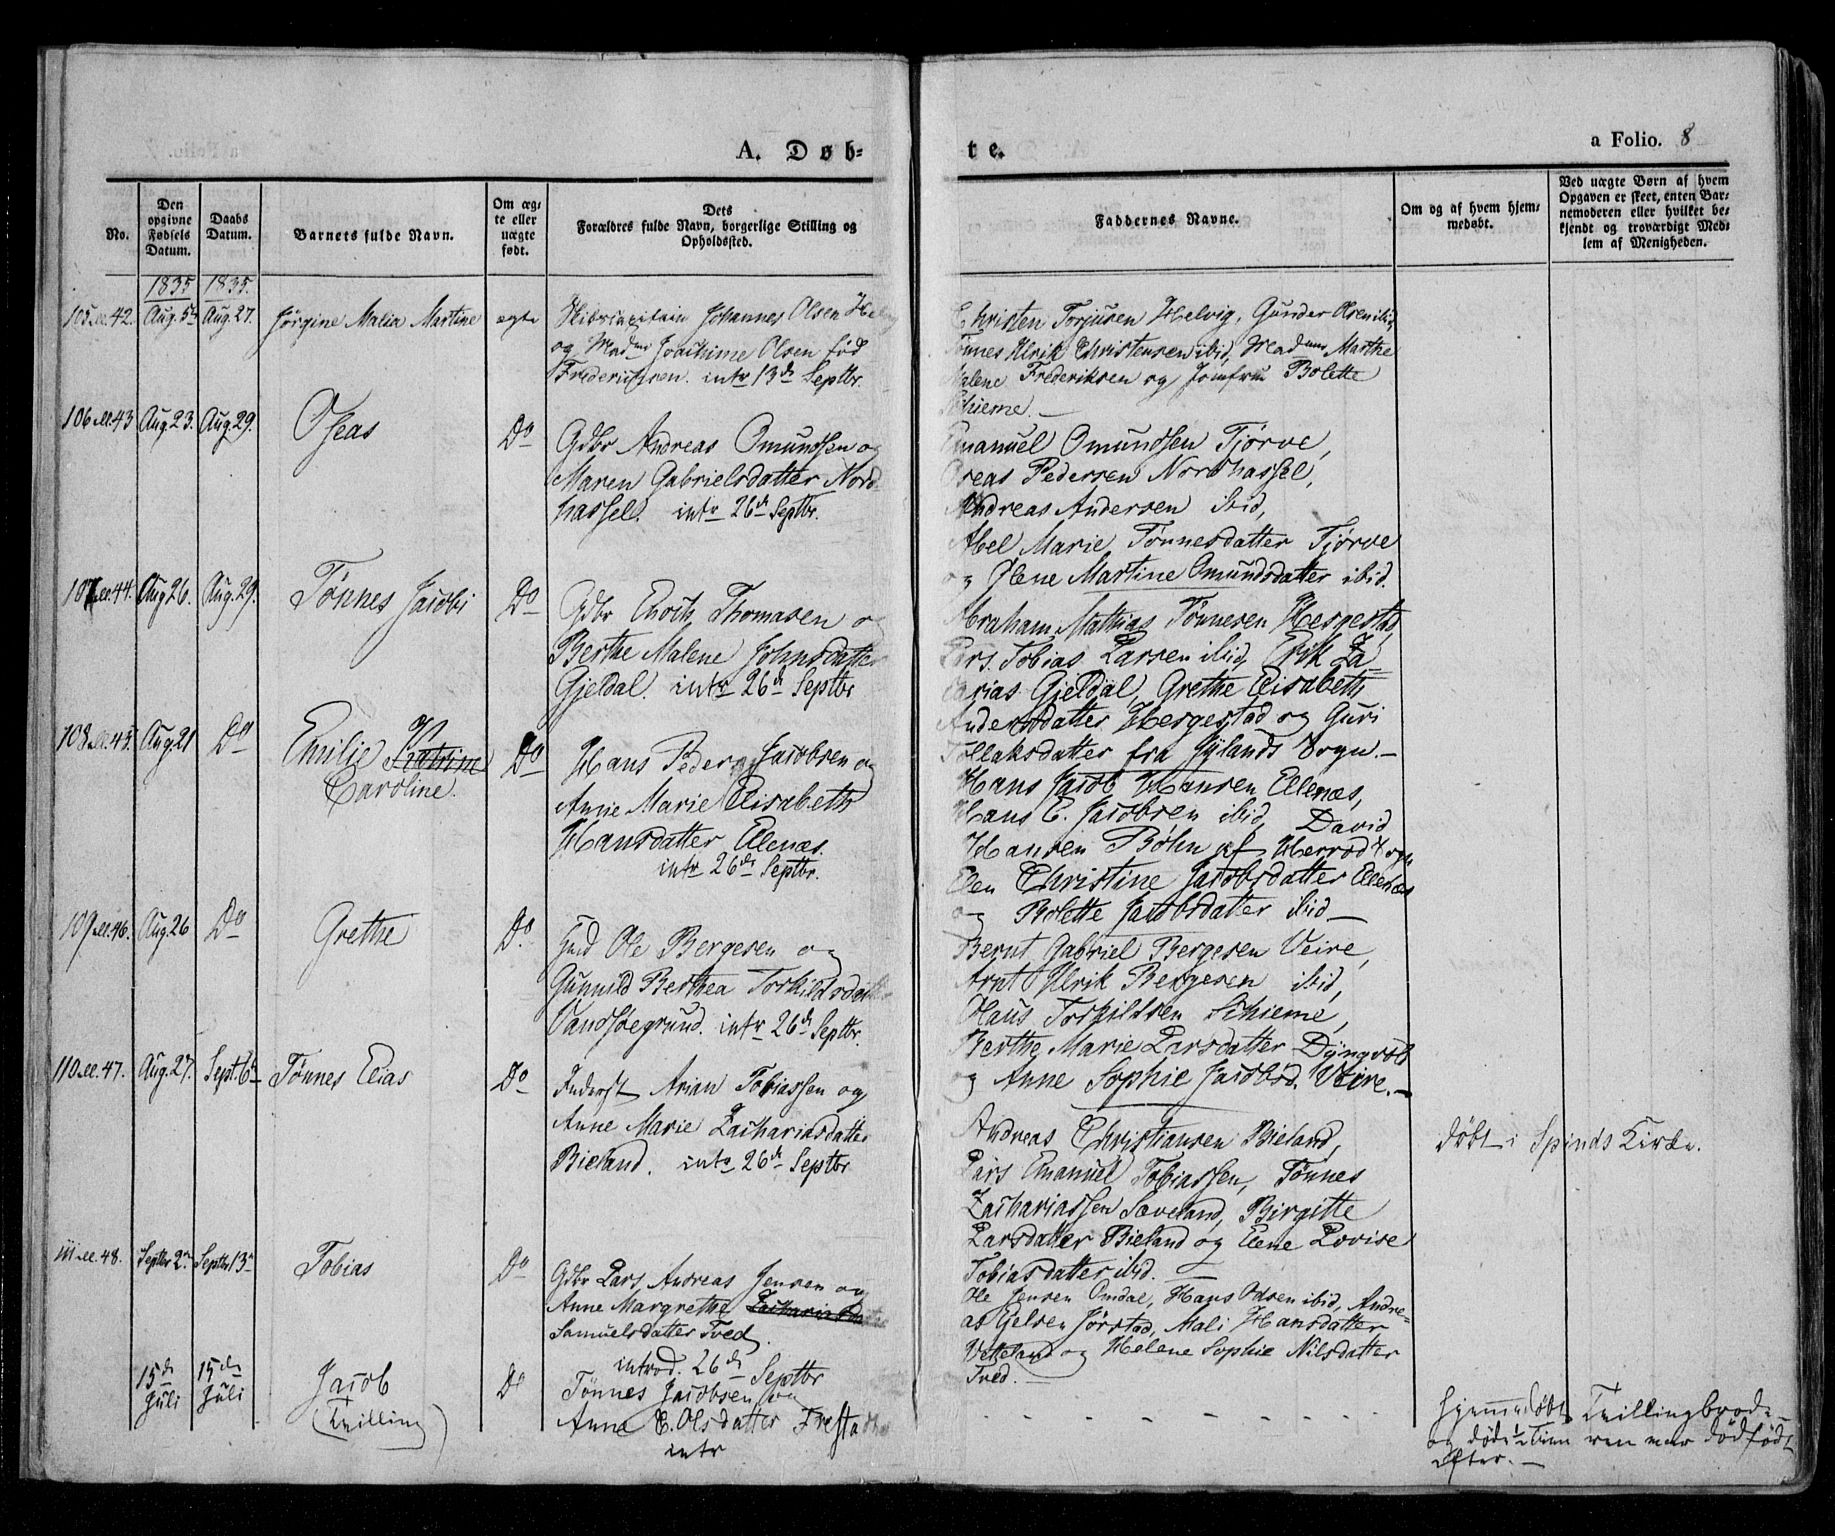 A. Døb-
te.
a Folio. 8
No.
Den opgivne Fødsels Datum.
Daabs Datum.
Barnets fulde Navn.
Om ægte eller uægte født.
Dets Forældres fulde Navn, borgerlige Stilling og Opholdssted.
Faddernes Navne.
Om og af hvem hjemmedøbt.
Ved uægte Børn af hvem Opgaven er skeet, enten Barnemoderen eller hvilket bekjendt og troværdigt Medlem af Menigheden.
1835 1835.
105 42. Aug. 5te Aug. 27. Jørgine Malia Martine ægte
Skibscapitain Johannes Olsen
og Madme Joachime Olsen fød
Frederichsen. intr 13de Septbr.
Christen Torjusen Helvig, Gunder Olsen ibid,
Tønnes Ulrik Christensen ibid, Madme Marthe
Malene Frederiksen og Jomfru Bolette
Schieme.
106 43 Aug 23. Aug. 29. Oseas Do
Gdbr Andreas Omundsen og
Maren Gabrielsdatter Nord-
hassel. intr 26de Septbr.
Emanuel Omundsen Tjørve,
Oreas Pedersen Nordhassel,
Andreas Andersen ibid,
Abel Marie Tønnesdatter Tjørve
og Olene Martine Omundsdatter ibid.
107 44. Aug 26. Aug. 29. Tønnes Jacobi Do
Gdbr Enoch Thomasen og
Berthe Malene Johnsdatter
Gjeldal. intr 26de Septbr
Abraham Mathias Tønnesen Hesgestad,
Lars Tobias Larsen ibid, Erik Za-
carias Gjeldal, Grethe Elisabeth
Andersdatter Hergestad og Guri
Tollaksdatter fra Jylands Sogn.
108 45. Aug 21 Do Emilie Katrine
Caroline. Do
Hans Peder Jacobsen og
Anne Marie Elisabeth
Hansdatter Ellenæs.
intr 26de Septbr.
Hans Jacob Hansen Ellenæs,
Hans E. Jacobsen ibid, David
Hansen Bøhn af Herrød Sogn
Elen Christine Jacobsdatter Ellenæs
og Bolette Jacobsdatter ibid
109 46. Aug. 26 Do Grethe Do.
Ole Bergesen og
Gunnild Berthea Torkildsdatter
Vandsøegrund. intr 26de Septbr.
Bernt Gabriel Bergesen Veire,
Arnt Ulrik Bergesen ibid,
Olaus Torkildsen Schieme,
Berthe Marie Larsdatter Dyngvold
og Anne Sophie Jacobsd. Veire.
110 47. Aug. 27. Sept. 6te Tønnes Elias Do
Inderst Arian Tobiassen og
Anne Marie Zachariasdatter
Bieland. intr 26de Septbr
Andreas Christiansen Bieland,
Lars Emanuel Tobiassen, Tønnes
Zachariassen Sæveland, Birgitte
Larsdatter Bieland og Elene Lovise
Tobiasdatter ibid.
døbt i Spinds Kirke.
111 48. Septbr 2den Septbr 13de Tobias Do
Gdbr Lars Andreas Jensen og
Anne Margrethe Zachariasdatter
Samuelsdatter Tved.
introd. 26de Septbr
Ole Jensen Omdal, Hans Odsen ibid, Andre-
as Gjelsen Jørstad, Mali Hansdatter
Vetteland og Helene Sophie Nilsdatter
Tved.
15de Juli 15de Juli Jacob
(Tvilling) Do
Tønnes Jacobsen og
Anne E. Olsdatter Frestad
intr
hjemmedøbt
og døde 1/2 Time
efter.
Tvillingbrode-
ren var dødfødt